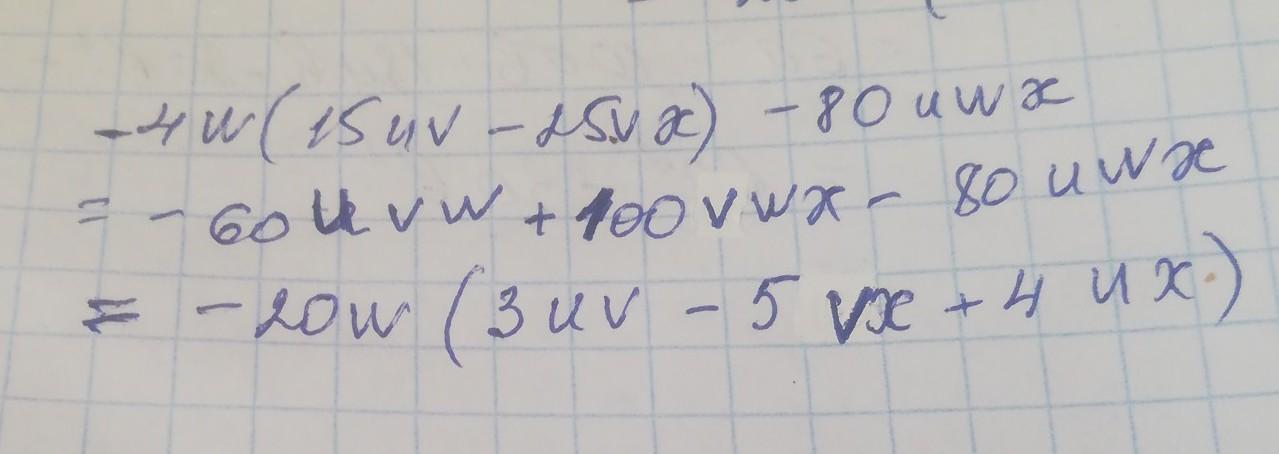 -4w(15uv - 25vx) - 80uwx
= -60uvw + 100vwx - 80uwx
= -20w(3uv - 5vx + 4ux)